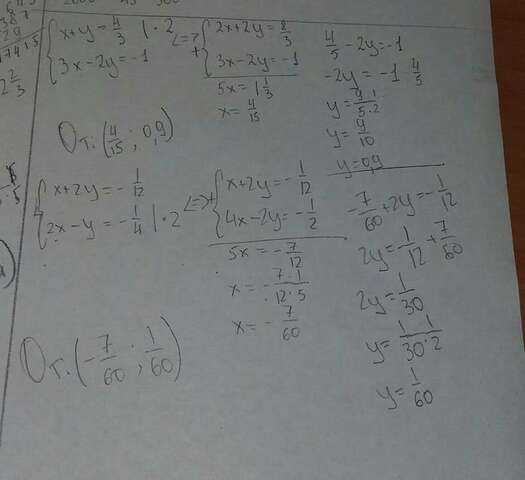 { x+y=4/3 | · 2
3x-2y=-1
<=> + { 2x+2y=8/3
3x-2y=-1
5x=1 1/3
x=4/15
4/5-2y=-1
-2y=-1 4/5
y=9·1/5·2
y=9/10
y=0,9
От.: (4/15; 0,9)
{ x+2y=-1/12
2x-y=-1/4 | · 2
<=> + { x+2y=-1/12
4x-2y=-1/2
5x=-7/12
x=-7·1/12·5
x=-7/60
-7/60+2y=-1/12
2y=-1/12+7/60
2y=1/30
y=1·1/30·2
y=1/60
От.: (-7/60; 1/60)
2 2/3